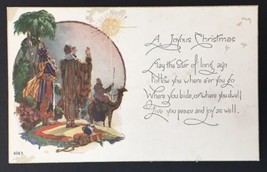 A Joyous Christmas
May the Star of long ago
Follow you where e'er you go
Where you bide, or where you dwell
Give you peace and joy as well.